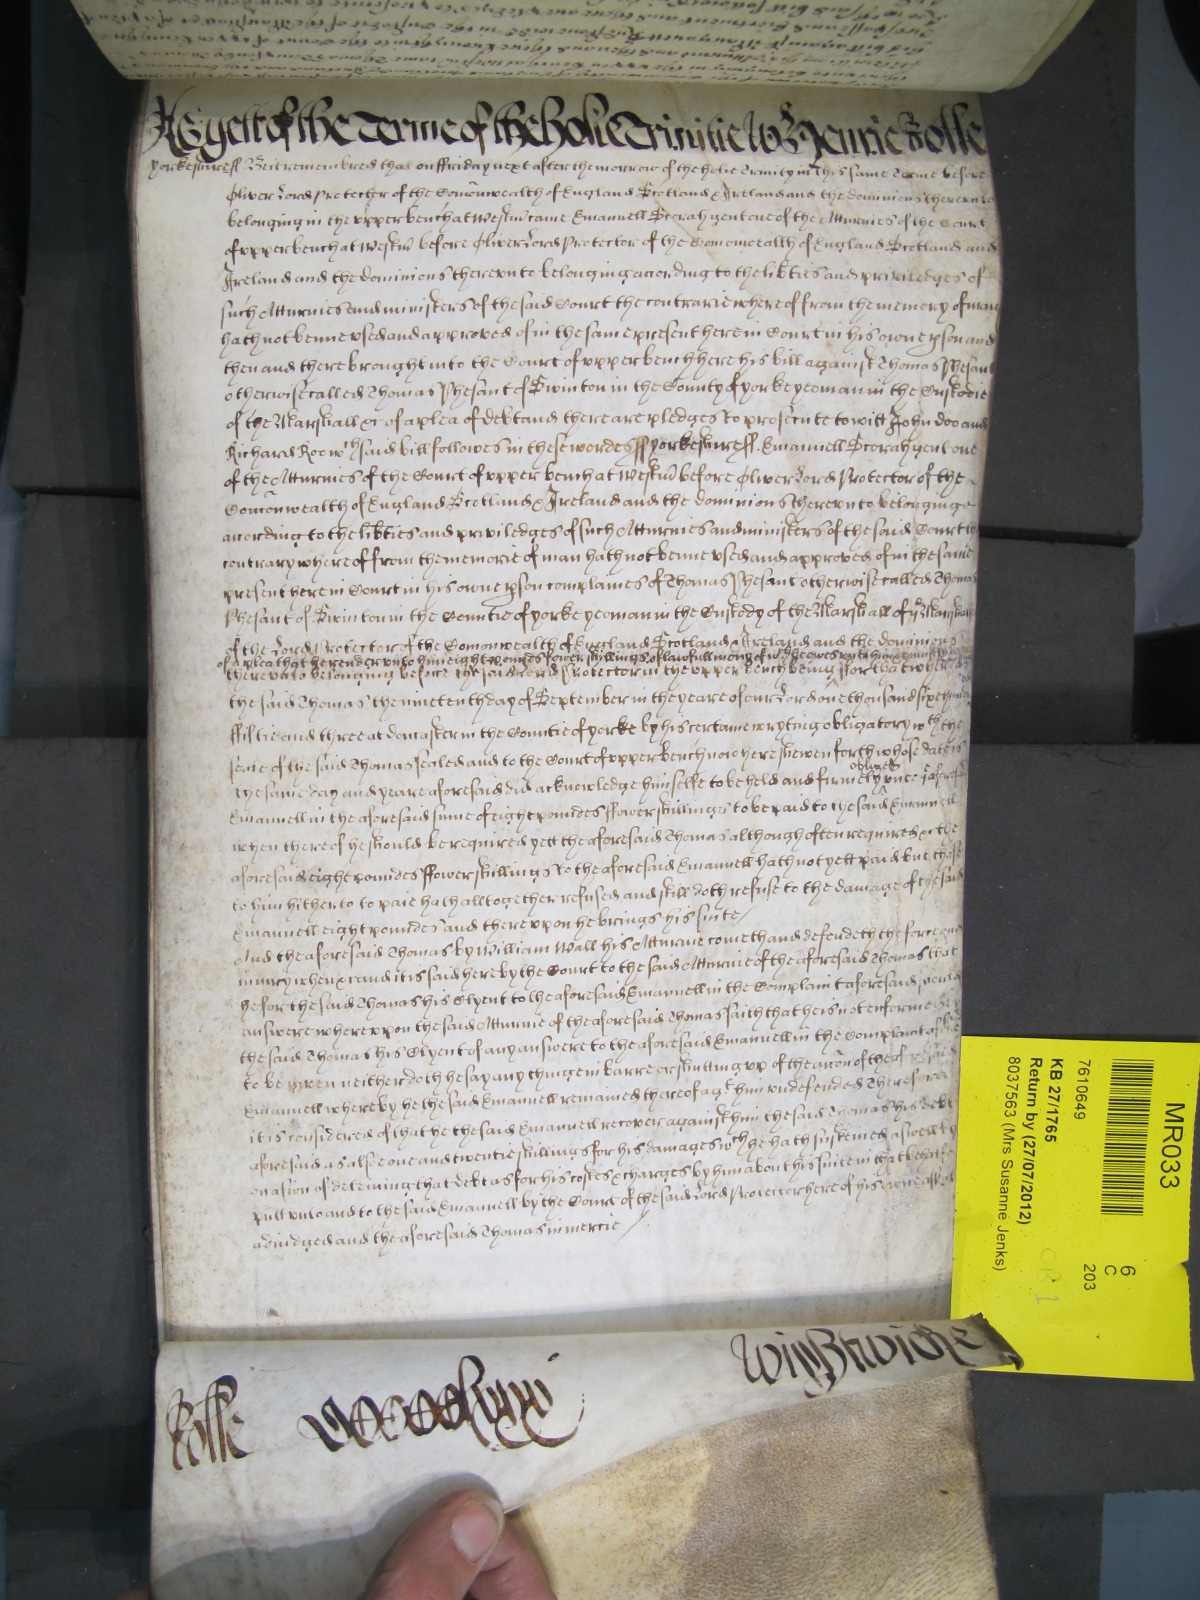 As yett of the Terme of the Holie Trinitie Wittnes Henrie Rolle
Yorkeshire ss Bee it remembred that on ffriday next after the morrow of the holie Trinity in this same Terme before
Oliver Lord Protector of the Comonwealth of England Scotland & Ireland and the dominions thereunto
belonging in the upper bench at Westmr came Emanuell Scorah gent one of the Atturnies of the Court
of upper bench at Westmr before Oliver Lord Protector of the Comonwealth of England Scotland and
Ireland and the dominions thereunto belonging according to the libties and priviledges of
such Atturnies and ministers of the said Court the contrarie whereof from the memory of man
hath not benne used and approved of in the same present here in Court in his owne pson and
then and there brought into the Court of upper bench here his bill against Thomas Phesant
otherwise called Thomas Phesant of Swinton in the County of yorke yeoman in the Custodie
of the Marshall &c of a plea of debt and there are pledges to prosecute to witt John Doo and
Richard Roo wch said bill followes in these wordes ss yorkeshire ss. Emanuell Scorah gent one
of the Atturnies of the Court of upper bench at Westmr before Oliver Lord Protector of the
Comonwealth of England Scotland & Ireland and the dominions thereunto belonginge
according to the libties and priviledges of such Atturnies and ministers of the said Court the
contrary whereof from the memorie of man hath not benne used and approved of in the same
present here in Court in his owne pson complaines of Thomas Phesant otherwise called Thomas
Phesant of Swinton in the Countie of yorke yeoman in the Custody of the Marshall of ye Marshalsea
of the Lord Protector of the Comonwealth of England Scotland & Ireland and the dominions
of a plea that he render unto him eight poundes fower shillings of lawfull mony of wch he owes unto him
thereunto belonging before the said Lord Protector in the upper bench being for that whereas
the said Thomas the nineteenth day of September in the yeare of our Lord one thousand sixe hundred
fiftie and three at doncaster in the Countie of yorke by his certaine wryting obligatory wth the
seale of the said Thomas sealed and to the Court of upper bench now here shewen forth whose date is
the same day and yeare aforesaid did acknowledge himselfe to be held and firmely unto ye aforesaid
Emanuell in the aforesaid sume of eight poundes ffower shillings to be paid to the said Emanuell
when thereof he should be required yett the aforesaid Thomas although often required &c the
aforesaid eight poundes ffower shillings to the aforesaid Emanuell hath not yett paid but those
to him hitherto to paie hath alltogether refused and still doth refuse to the damage of the said
Emanuell eight poundes and thereupon he brings his suite /
And the aforesaid Thomas by William Wall his Atturnie cometh and defendeth the force and
iniury when &c and it is said here by the Court to the said Atturnie of the aforesaid Thomas that
he for the said Thomas his Clyent to the aforesaid Emanuell in the Complaint aforesaid should
answere whereupon the said Atturnie of the aforesaid Thomas saith that he is not enformed by
the said Thomas his Clyent of any answere to the aforesaid Emanuell in the Complaint aforesaid
to be given neither doth he say any thinge in barre or shutting up of the accon of the aforesaid
Emanuell whereby he the said Emanuell remained thereof agst him undefended Therefore
it is considered of that he the said Emanuell recover against him the said Thomas his debt
aforesaid as alsoe one and twentie shillings for his damages wch he hath susteined aswell by
occasion of deteining that debt as for his costes & charges by him about his suite in that behalfe
putt unto and to the said Emanuell by the Court of the said Lord Protector here of his owne assent
adiudged and the aforesaid Thomas in mercie /
Rolle
Wightwicke
MR033
7610649
6
C
203
KB 27/1765
Return by (27/07/2012)
8037563 (Mrs Susanne Jenks)